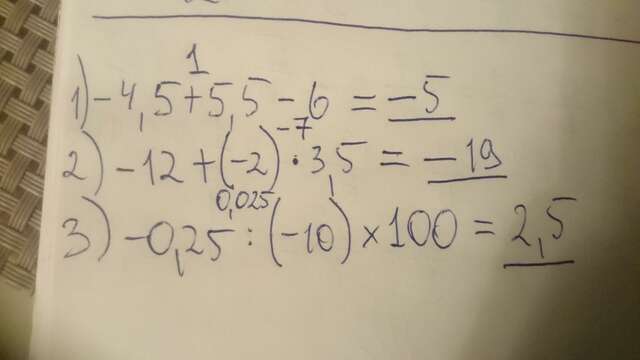 1
1) -4,5+5,5-6 = -5
-7
2) -12+(-2)·3,5 = -19
0,025
3) -0,25:(-10)×100 = 2,5